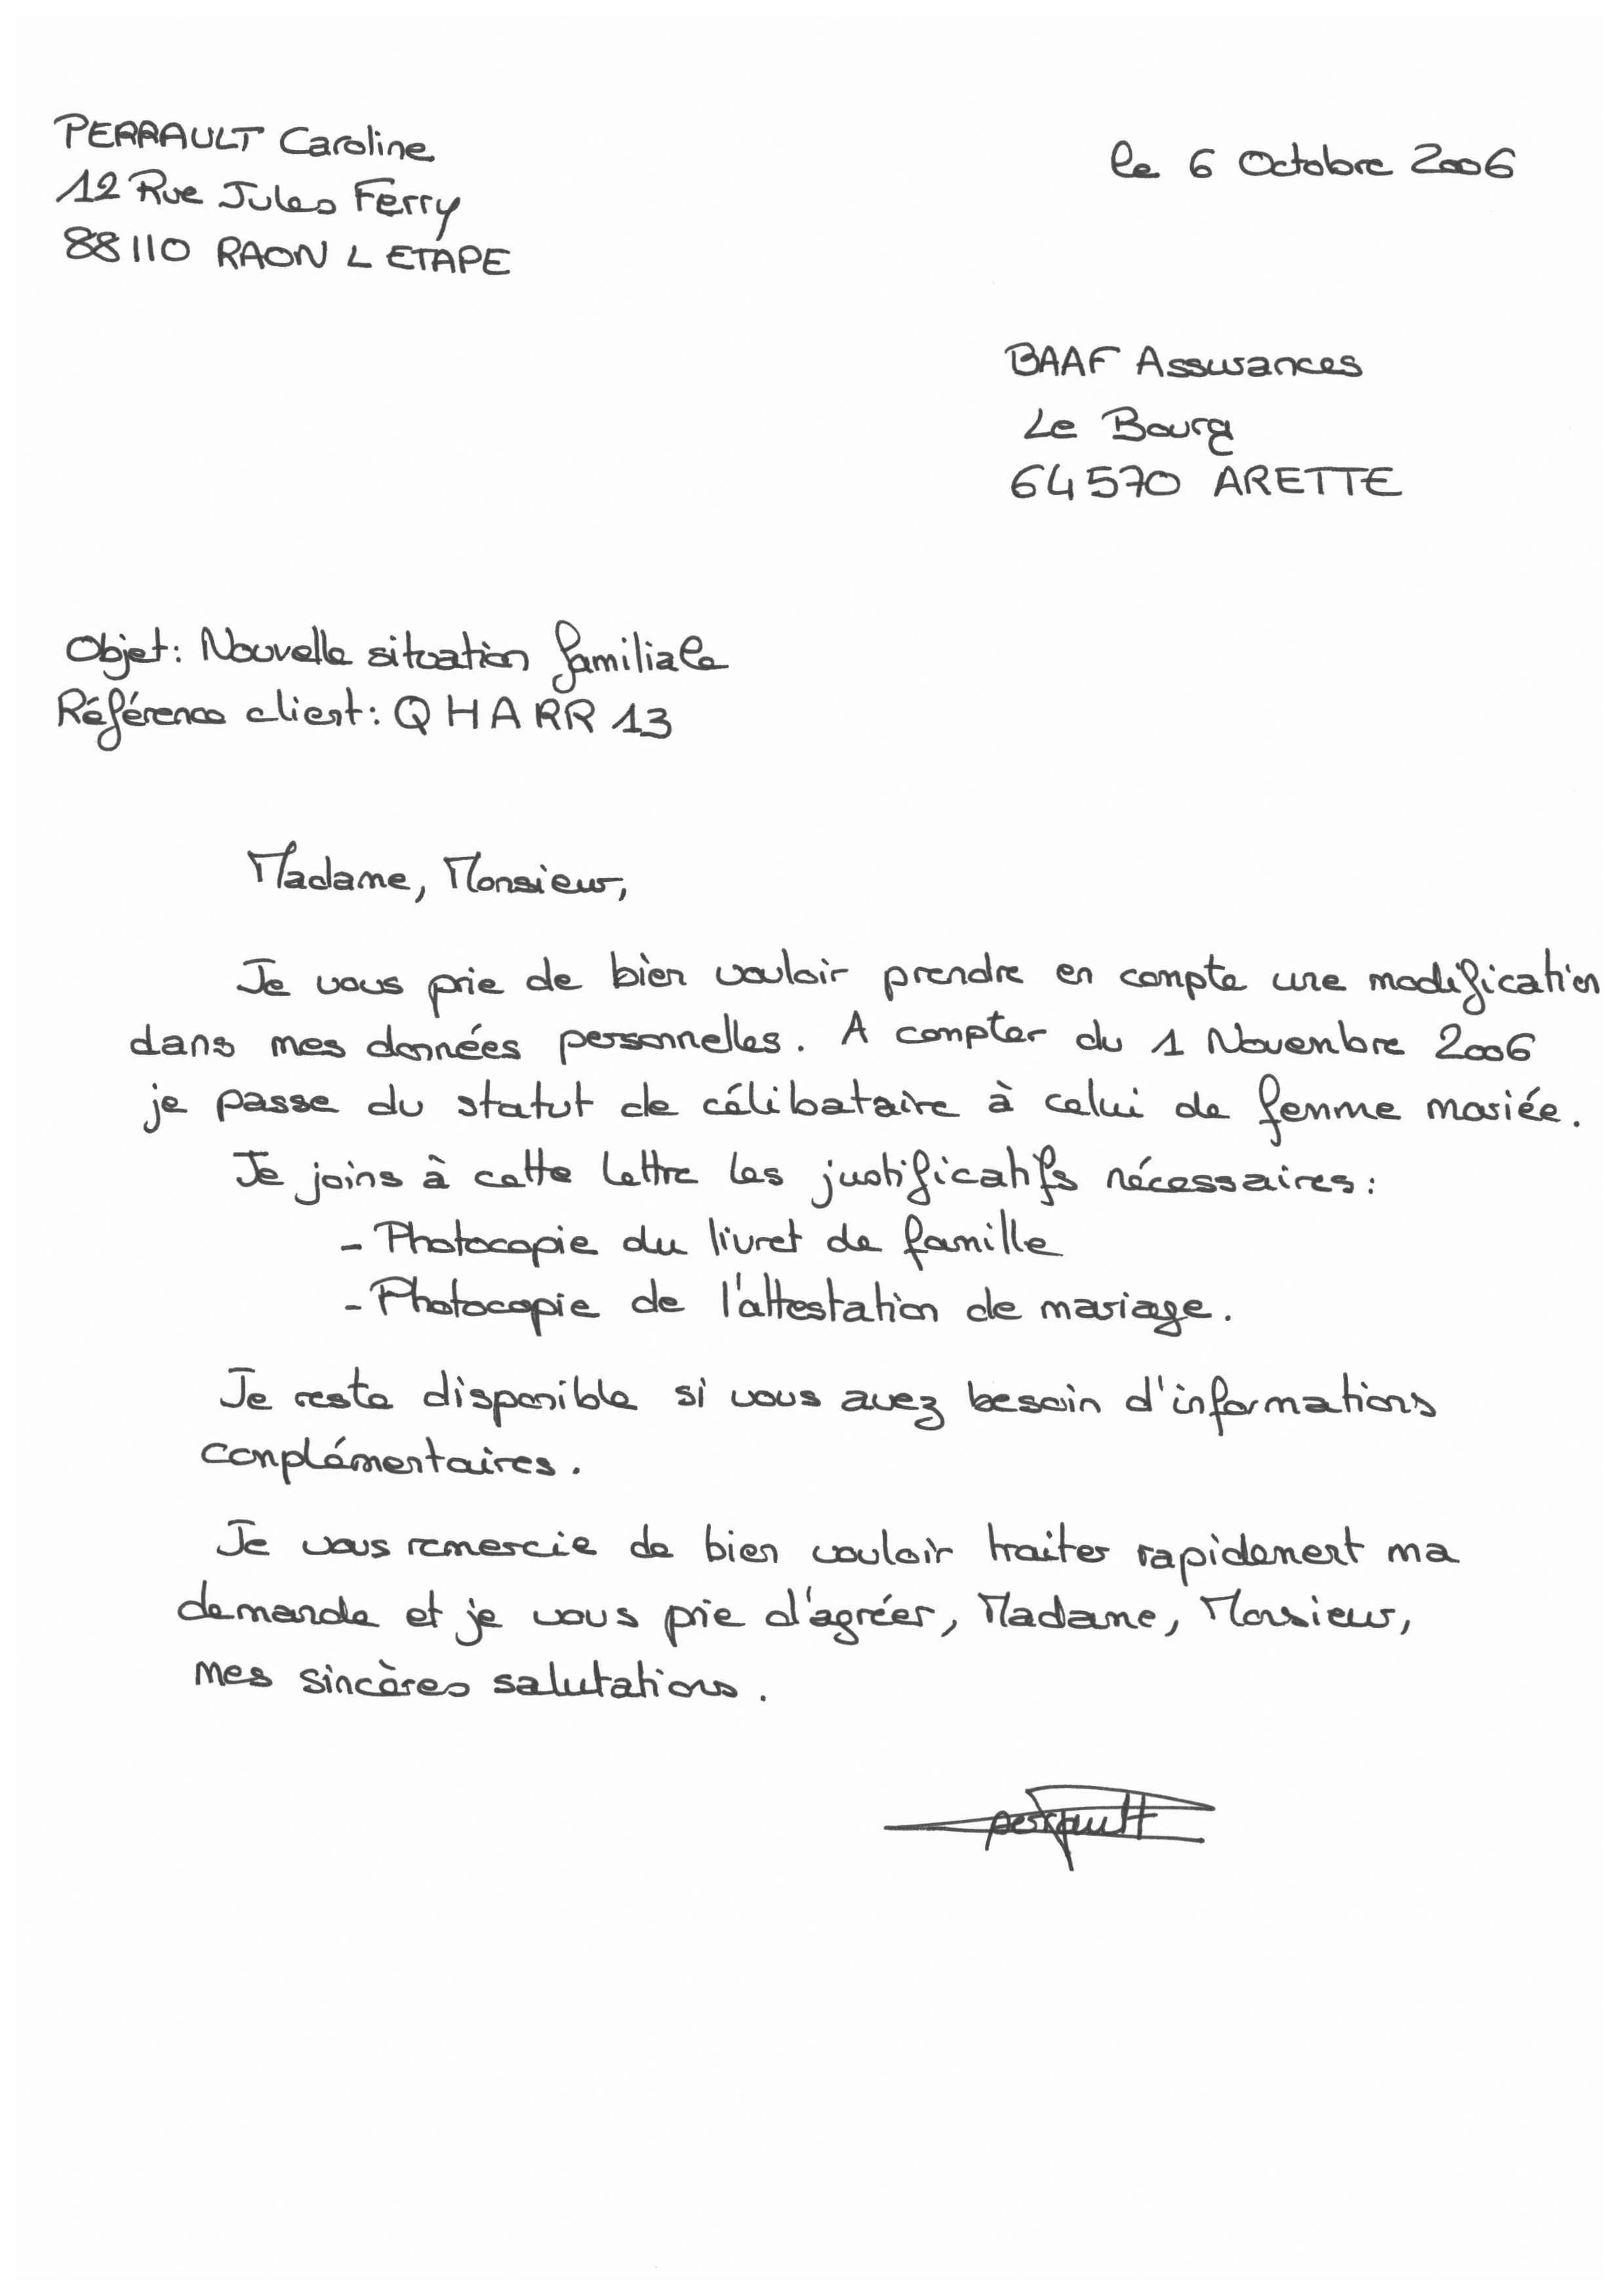 PERRAULT Caroline
12 Rue Jules Ferry
88110 RAON L ETAPE
le 6 Octobre 2006
BAAF Assurances
Le Bourg
64570 ARETTE
Objet: Nouvelle situation familiale
Référence client: QHARR13
Madame, Monsieur,
Je vous prie de bien vouloir prendre en compte une modification
dans mes données personnelles. A compter du 1 Novembre 2006
je passe du statut de célibataire à celui de femme mariée.
Je joins à cette lettre les justificatifs nécessaires:
- Photocopie du livret de famille
- Photocopie de l'attestation de mariage.
Je reste disponible si vous avez besoin d'informations
complémentaires.
Je vous remercie de bien vouloir traiter rapidement ma
demande et je vous prie d'agréer, Madame, Monsieur,
mes sincères salutations.
perrault